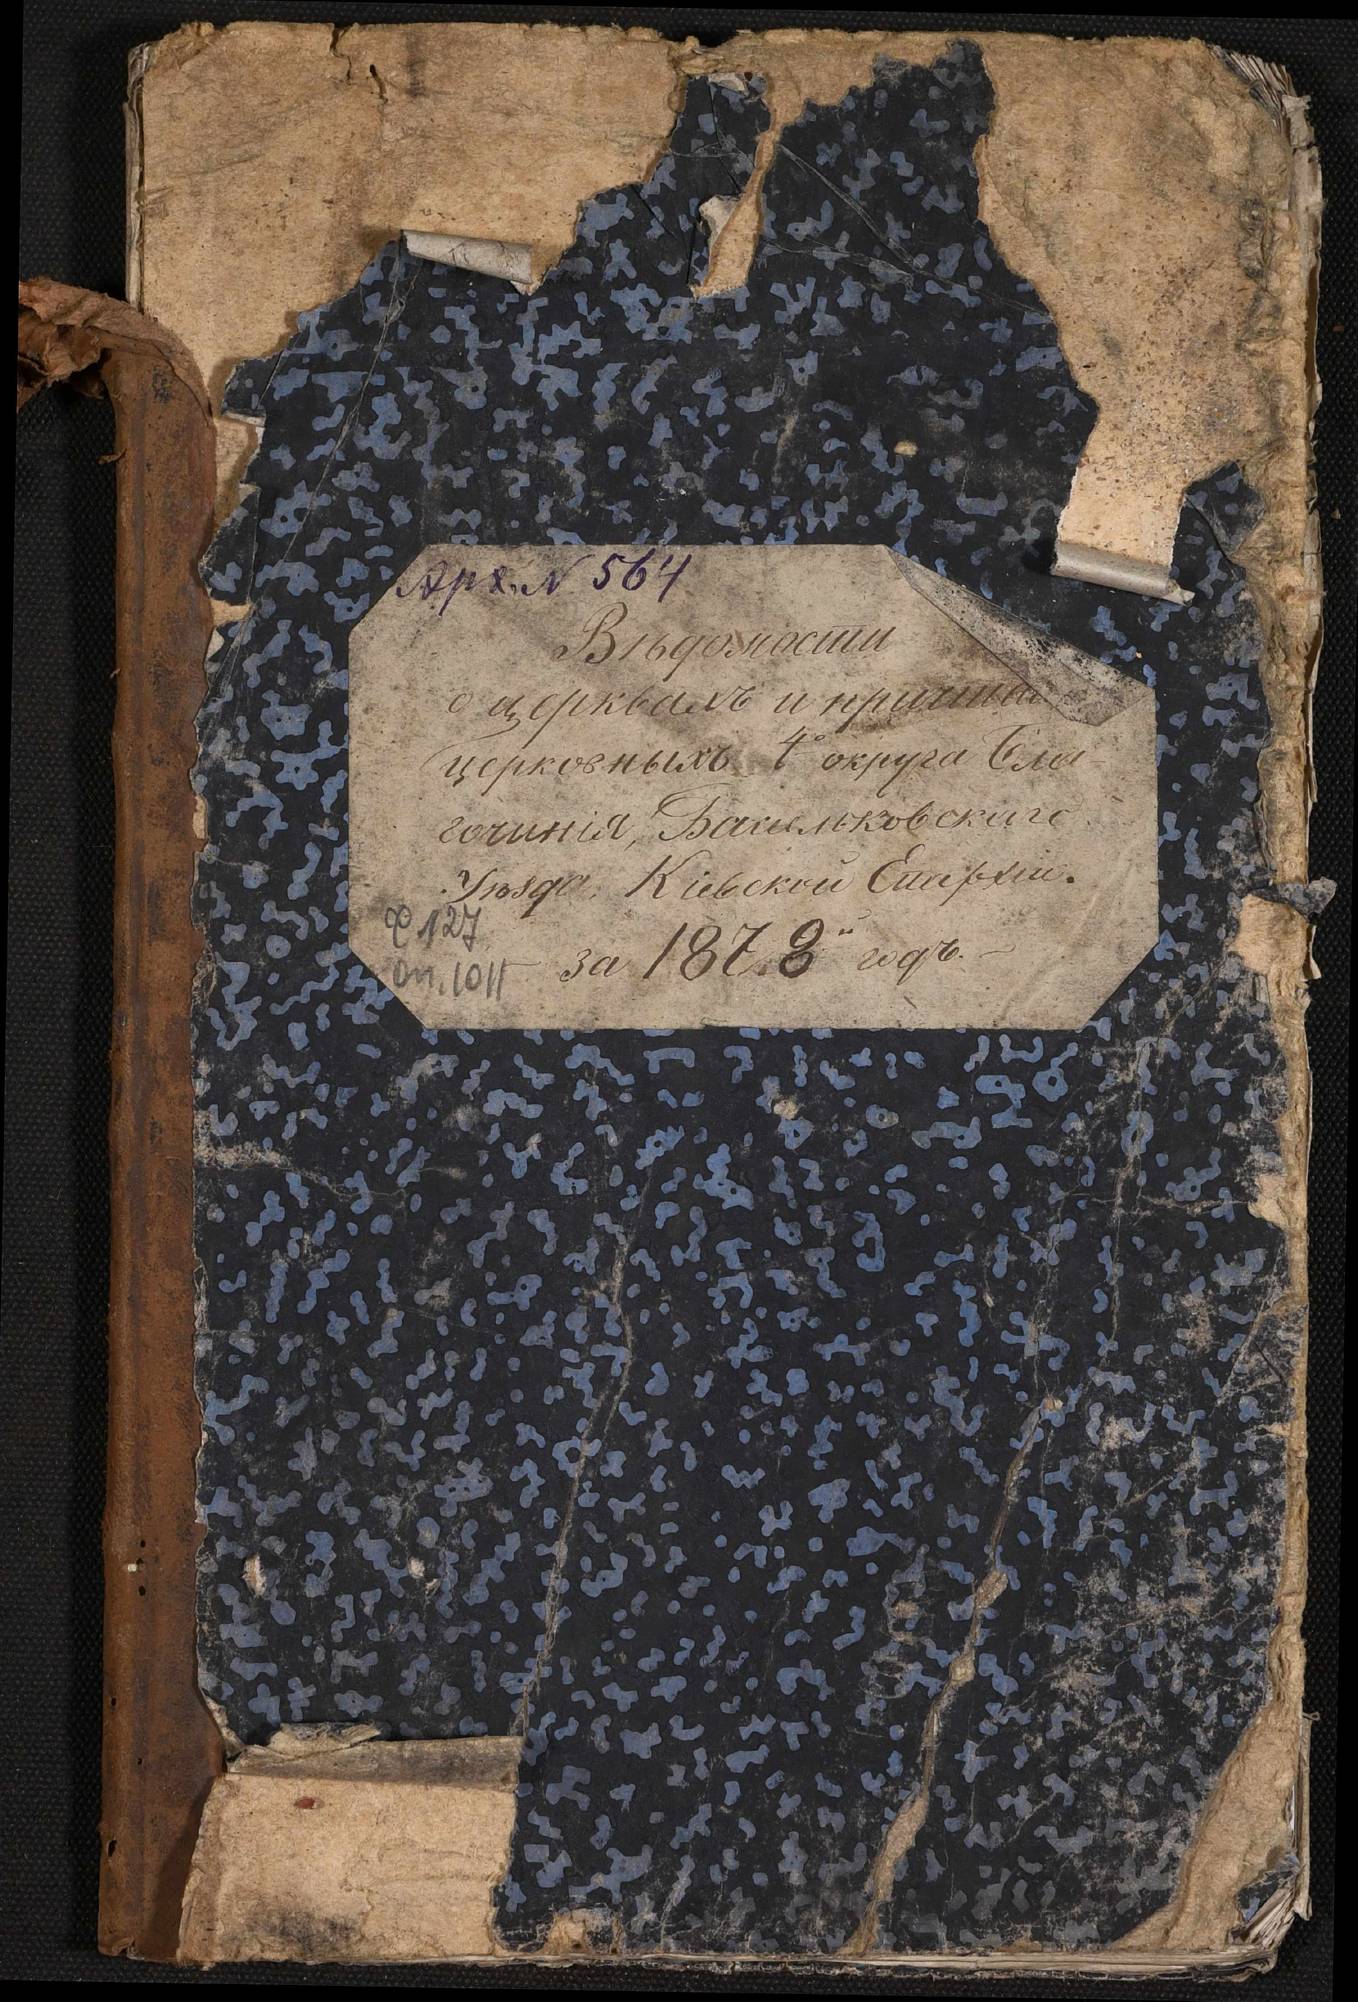 Арх. N 564
Вѣдомости
о церквахъ и причта
церковныхъ 4º округа Бла-
гочинія, Васильковскаго
Уѣзда, Кіевской Епархіи.
за 1878й годъ. —
Ф 127
оп. 1011